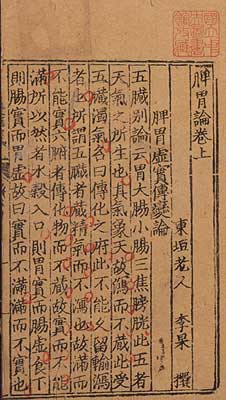 脾胃論卷上
東垣老人 李杲 撰
脾胃虛實傳變論
五臟別論云胃大腸小腸三焦膀胱此五者
天氣之所生也其氣象天故瀉而不藏此受
五臟濁氣名曰傳化之府此不能久留輸瀉
者也所謂五臟者藏精氣而不瀉也故滿而
不能實六腑者傳化物而不藏故實而不能
滿所以然者水穀入口則胃實而腸虛食下
則腸實而胃虛故曰實而不滿滿而不實也